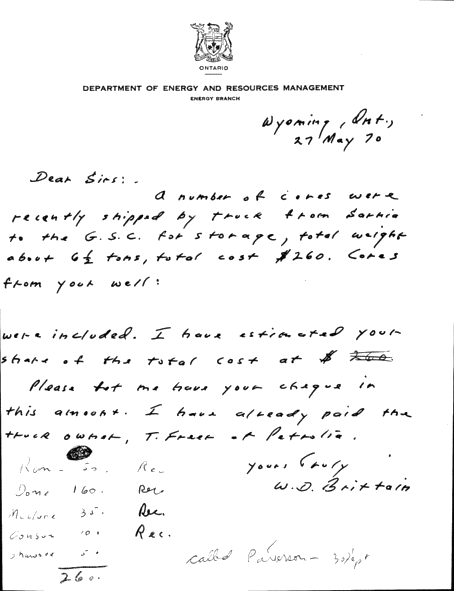 ONTARIO
DEPARTMENT OF ENERGY AND RESOURCES MANAGEMENT
ENERGY BRANCH
Wyoming, Ont.,
27 May 70
Dear Sirs:
A number of cores were
recently shipped by truck from Sarnia
to the G.S.C. for storage, total weight
about 6½ tons, total cost $260. Cores
from your well:
were included. I have estimated your
share of the total cost at $ 260
Please let me have your cheque in
this amount. I have already paid the
truck owner, T. Freer of Petrolia.
yours truly
W.D. Brittain
50. Rec
Dome 160. Rec
35. Rec.
10. Rec.
5.
260.
called Paterson - 30 Sept